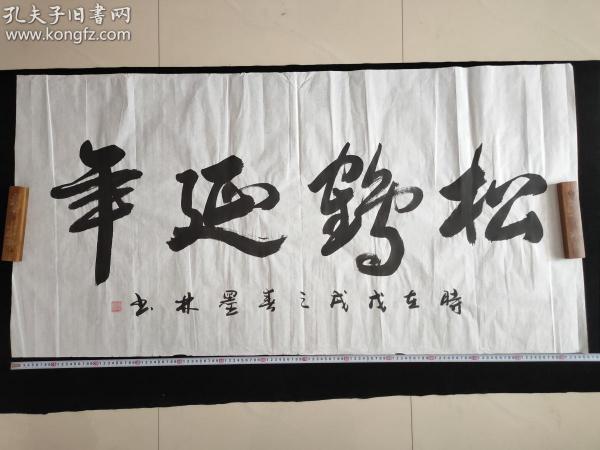 孔夫子旧书网
www.kongfz.com
松鹤延年
時在戊戌之春墨林书